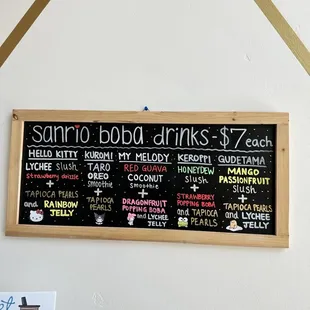 sanrio boba drinks - $7 each
HELLO KITTY
LYCHEE slush
Strawberry drizzle
+
TAPIOCA PEARLS
and RAINBOW
JELLY
KUROMI
TARO
OREO
smoothie
+
TAPIOCA
PEARLS
MY MELODY
RED GUAVA
COCONUT
smoothie
+
DRAGONFRUIT
POPPING BOBA
and LYCHEE
JELLY
KEROPPI
HONEYDEW
slush
+
STRAWBERRY
POPPING BOBA
and TAPIOCA
PEARLS
GUDETAMA
MANGO
PASSIONFRUIT
slush
+
TAPIOCA PEARLS
and LYCHEE
JELLY